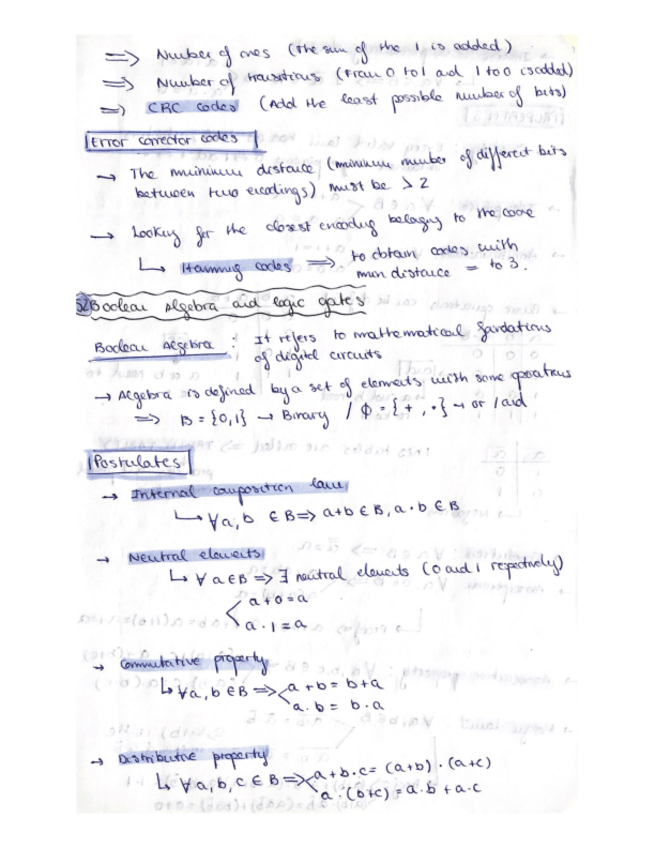 ⇒ Number of ones (the sum of the 1 is added)
⇒ Number of transitions (from 0 to 1 and 1 to 0 is added)
⇒ CRC codes (Add the least possible number of bits)
Error corrector codes
→ The minimum distance (minimum number of different bits
between two encodings) must be > 2
→ Looking for the closest encoding belonging to the code
↳ Hamming codes ⇒ to obtain codes with
min distance = to 3.
Boolean Algebra and logic gates
Boolean Algebra : It refers to mathematical fundations
of digital circuits
→ Algebra is defined by a set of elements with some operations
⇒ B = {0,1} → Binary / Φ = {+ , •} → or / and
Postulates
→ Internal composition law
↳ ∀ a, b ∈ B ⇒ a+b ∈ B, a · b ∈ B
→ Neutral elements
↳ ∀ a ∈ B ⇒ ∃ neutral elements (0 and 1 respectively)
a + 0 = a
a · 1 = a
→ Commutative property
↳ ∀ a, b ∈ B ⇒ a + b = b + a
a · b = b · a
→ Distributive property
↳ ∀ a, b, c ∈ B ⇒ a + b · c = (a+b) · (a+c)
a · (b+c) = a · b + a · c